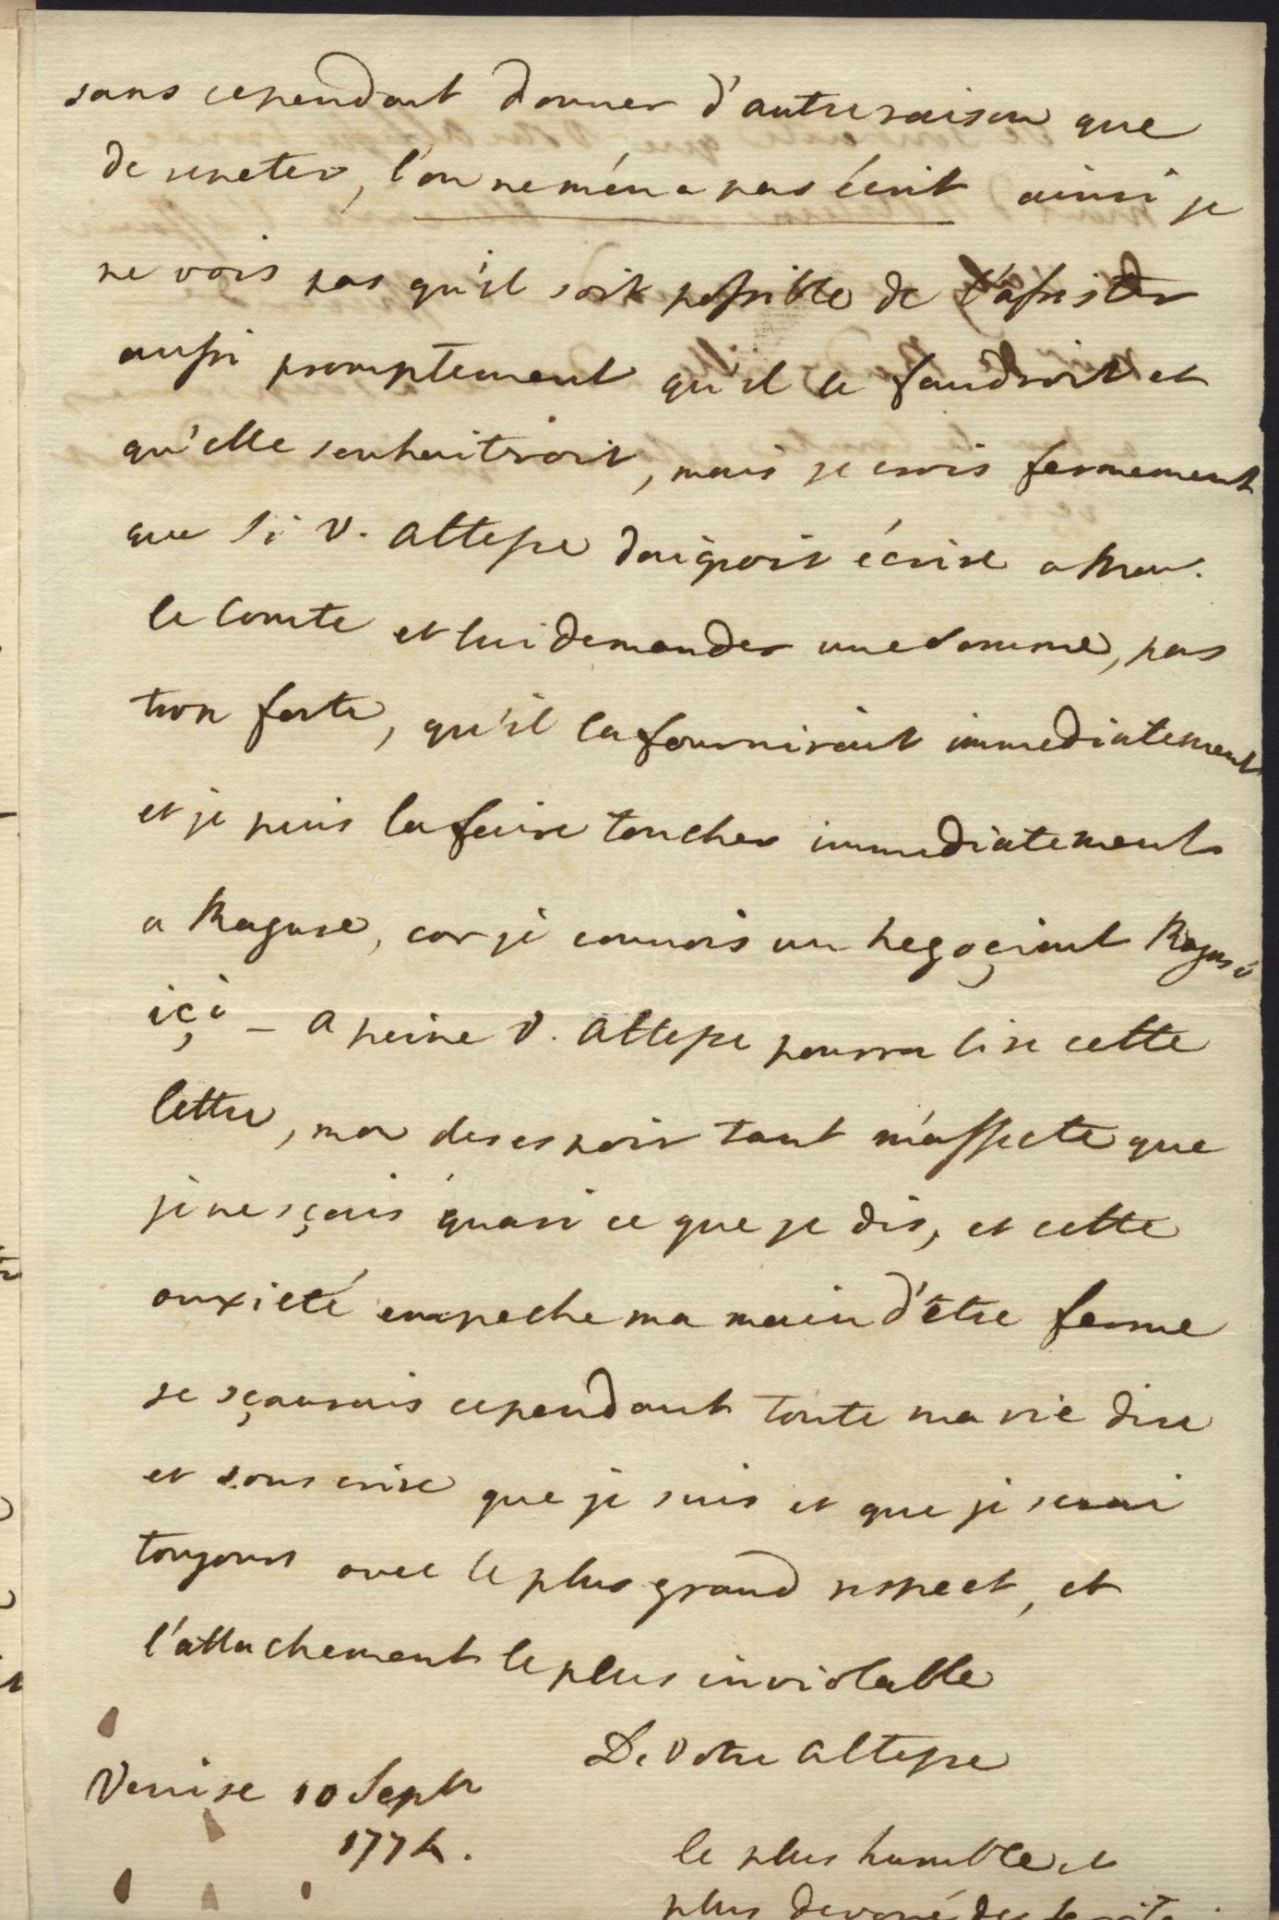 sans cependant donner d'autre raison que
de repeter, l'on ne m'en a pas écrit ainsi je
ne vois pas qu'il soit possible de l'assister
aussi promptement qu'il le faudroit et
qu'elle souhaitroit, mais je crois fermement
que si V. Altesse daignoit écrire a Mon.
le Comte et lui demander une somme, pas
trop forte, qu'il la fourniroit immediatement
et je puis la faire toucher immediatement
a Raguse, car je connois un negoçiant Ragusé
içi – A peine V. Altesse pourra lire cette
lettre, mon desespoir tant m'affecte que
je ne sçais quasi ce que je dis, et cette
anxieté empeche ma main d'être ferme
je sçaurais cependant toute ma vie dire
et souscrire que je suis et que je serai
toujours avec le plus grand respect, et
l'attachement le plus inviolable
De Votre Altesse
Venise 10 Sept
1774.
le plus humble et
plus devoué des